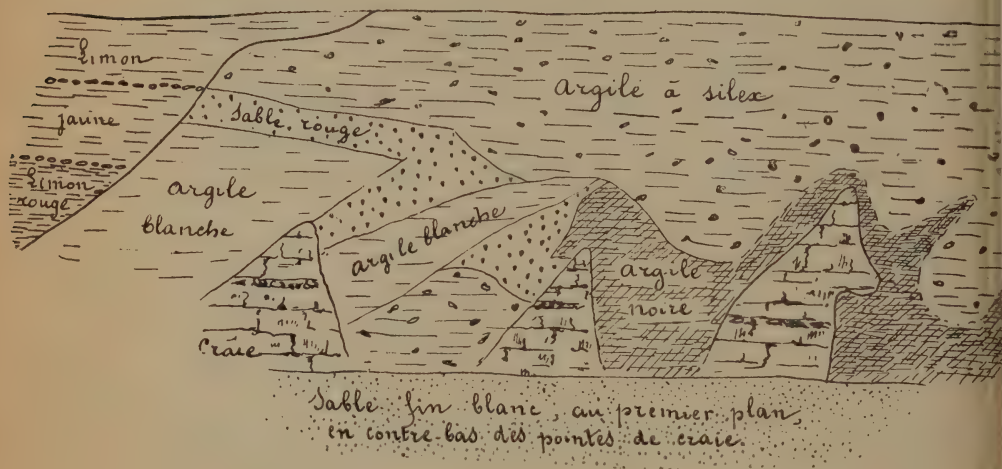 Limon
jaune
Limon
rouge
Sable rouge
argile à silex
argile
blanche
argile blanche
argile
noire
Craie
Sable fin blanc, au premier plan,
en contre-bas des pointes de craie.